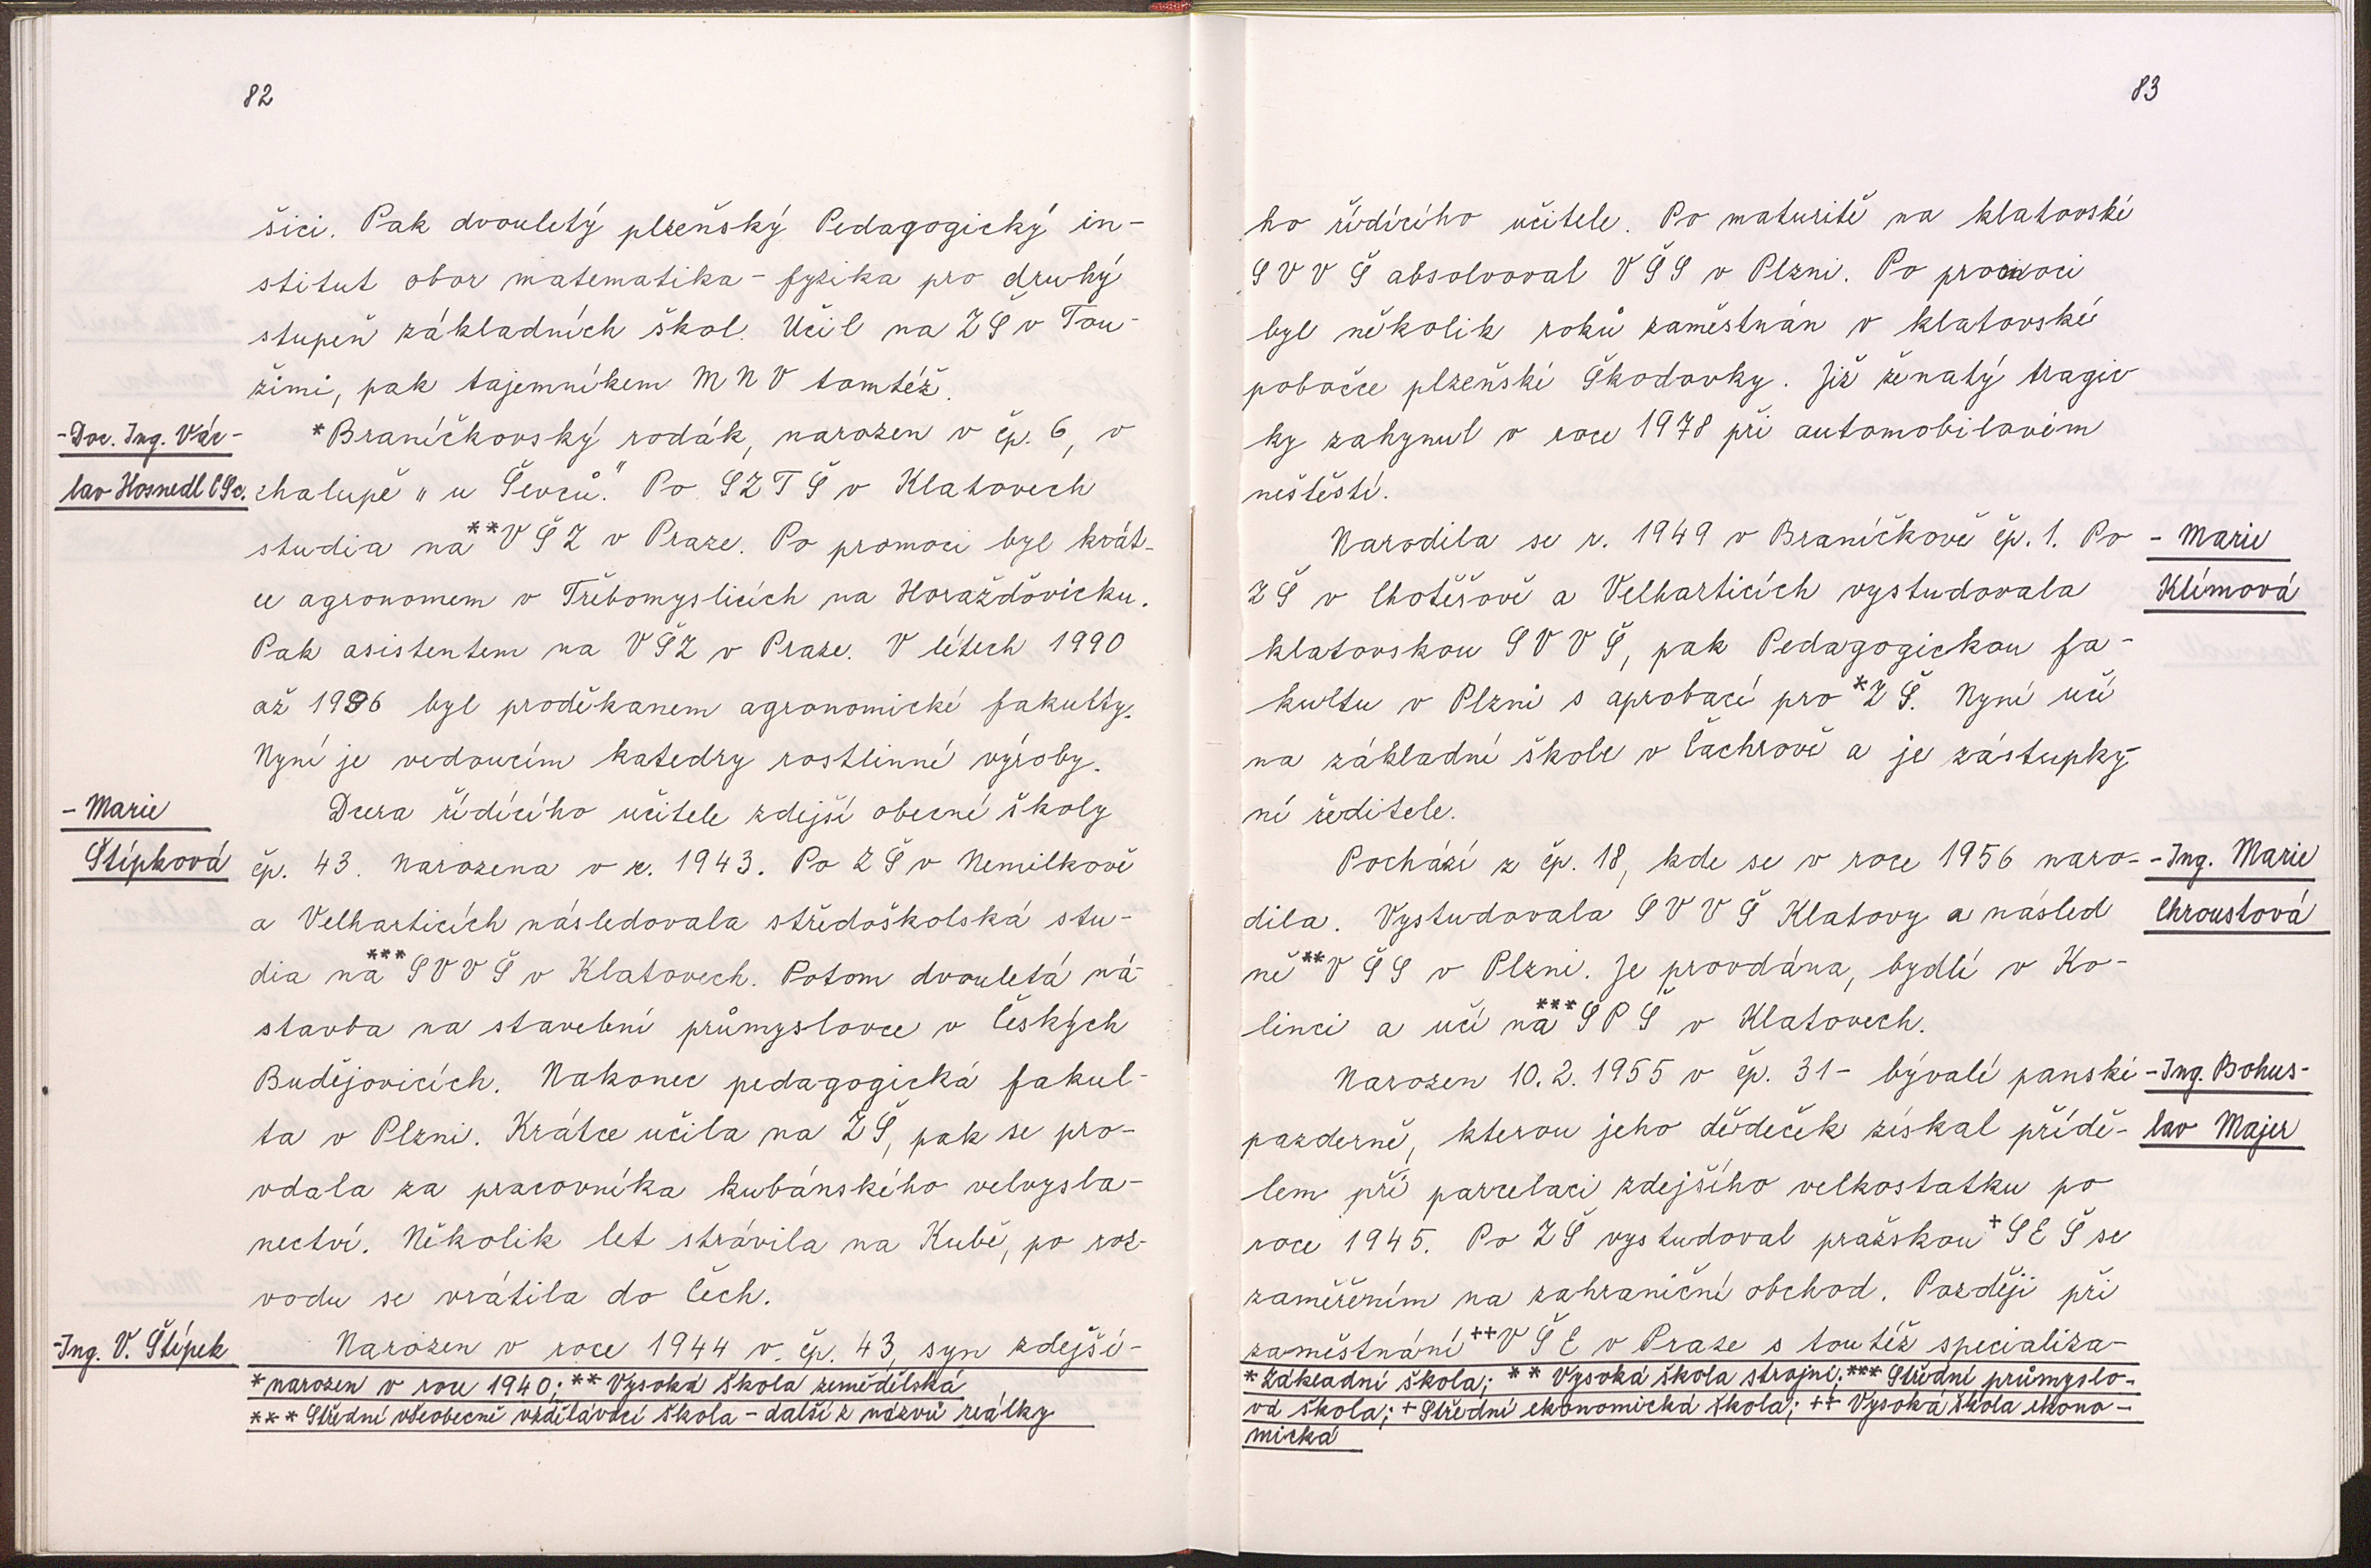 82
šici. Pak dvouletý plzeňský Pedagogický in-
stitut obor matematika - fyzika pro druhý
stupeň základních škol. Učil na ZŠ v Tou-
žimi, pak tajemníkem MNV tamtéž.
- Doc. Ing. Vác-
lav Hosnedl CSc.
*Braníčkovský rodák, narozen v čp. 6, v
chalupě „u Ševců." Po SZTŠ v Klatovech
studia na **VŠZ v Praze. Po promoci byl krát-
ce agronomem v Třebomyslicích na Horažďovicku.
Pak asistentem na VŠZ v Praze. V létech 1990
až 1996 byl proděkanem agronomické fakulty.
Nyní je vedoucím katedry rostlinné výroby.
- Marie
Štípková
Dcera řídícího učitele zdejší obecné školy
čp. 43. Narozena v r. 1943. Po ZŠ v Nemilkově
a Velharticích následovala středoškolská stu-
dia na ***SVVŠ v Klatovech. Potom dvouletá ná-
stavba na stavební průmyslovce v Českých
Budějovicích. Nakonec pedagogická fakul-
ta v Plzni. Krátce učila na ZŠ, pak se pro-
vdala za pracovníka kubánského velvysla-
nectví. Několik let strávila na Kubě, po roz-
vodu se vrátila do Čech.
-Ing. V. Štípek
Narozen v roce 1944 v čp. 43, syn zdejší-
* narozen v roce 1940; ** Vysoká škola zemědělská
*** Střední všeobecně vzdělávací škola - další z názvů reálky
83
ho řídícího učitele. Po maturitě na klatovské
SVVŠ absolvoval VŠS v Plzni. Po promoci
byl několik roků zaměstnán v klatovské
pobočce plzeňské Škodovky. Již ženatý tragic
ky zahynul v roce 1978 při automobilovém
neštěstí.
Narodila se r. 1949 v Braníčkově čp. 1. Po
ZŠ v Chotěšově a Velharticích vystudovala
klatovskou SVVŠ, pak Pedagogickou fa-
kultu v Plzni s aprobací pro *ZŠ. Nyní učí
na základní škole v Čachrově a je zástupky-
ní ředitele.
- Marie
Klímová
Pochází z čp. 18, kde se v roce 1956 naro-
dila. Vystudovala SVVŠ Klatovy a násled
ně **VŠS v Plzni. Je provdána, bydlí v Ko-
linci a učí na ***SPŠ v Klatovech.
- Ing. Marie
Chroustová
Narozen 10. 2. 1955 v čp. 31 - bývalé panské
pazderně, kterou jeho dědeček získal přídě-
lem při parcelaci zdejšího velkostatku po
roce 1945. Po ZŠ vystudoval pražskou +SEŠ se
zaměřením na zahraniční obchod. Později při
zaměstnání ++VŠE v Praze s toutéž specializa-
- Ing. Bohus-
lav Majer
* Základní škola; ** Vysoká škola strojní; *** Střední průmyslo-
vá škola; + Střední ekonomická škola; ++ Vysoká škola ekono-
mická